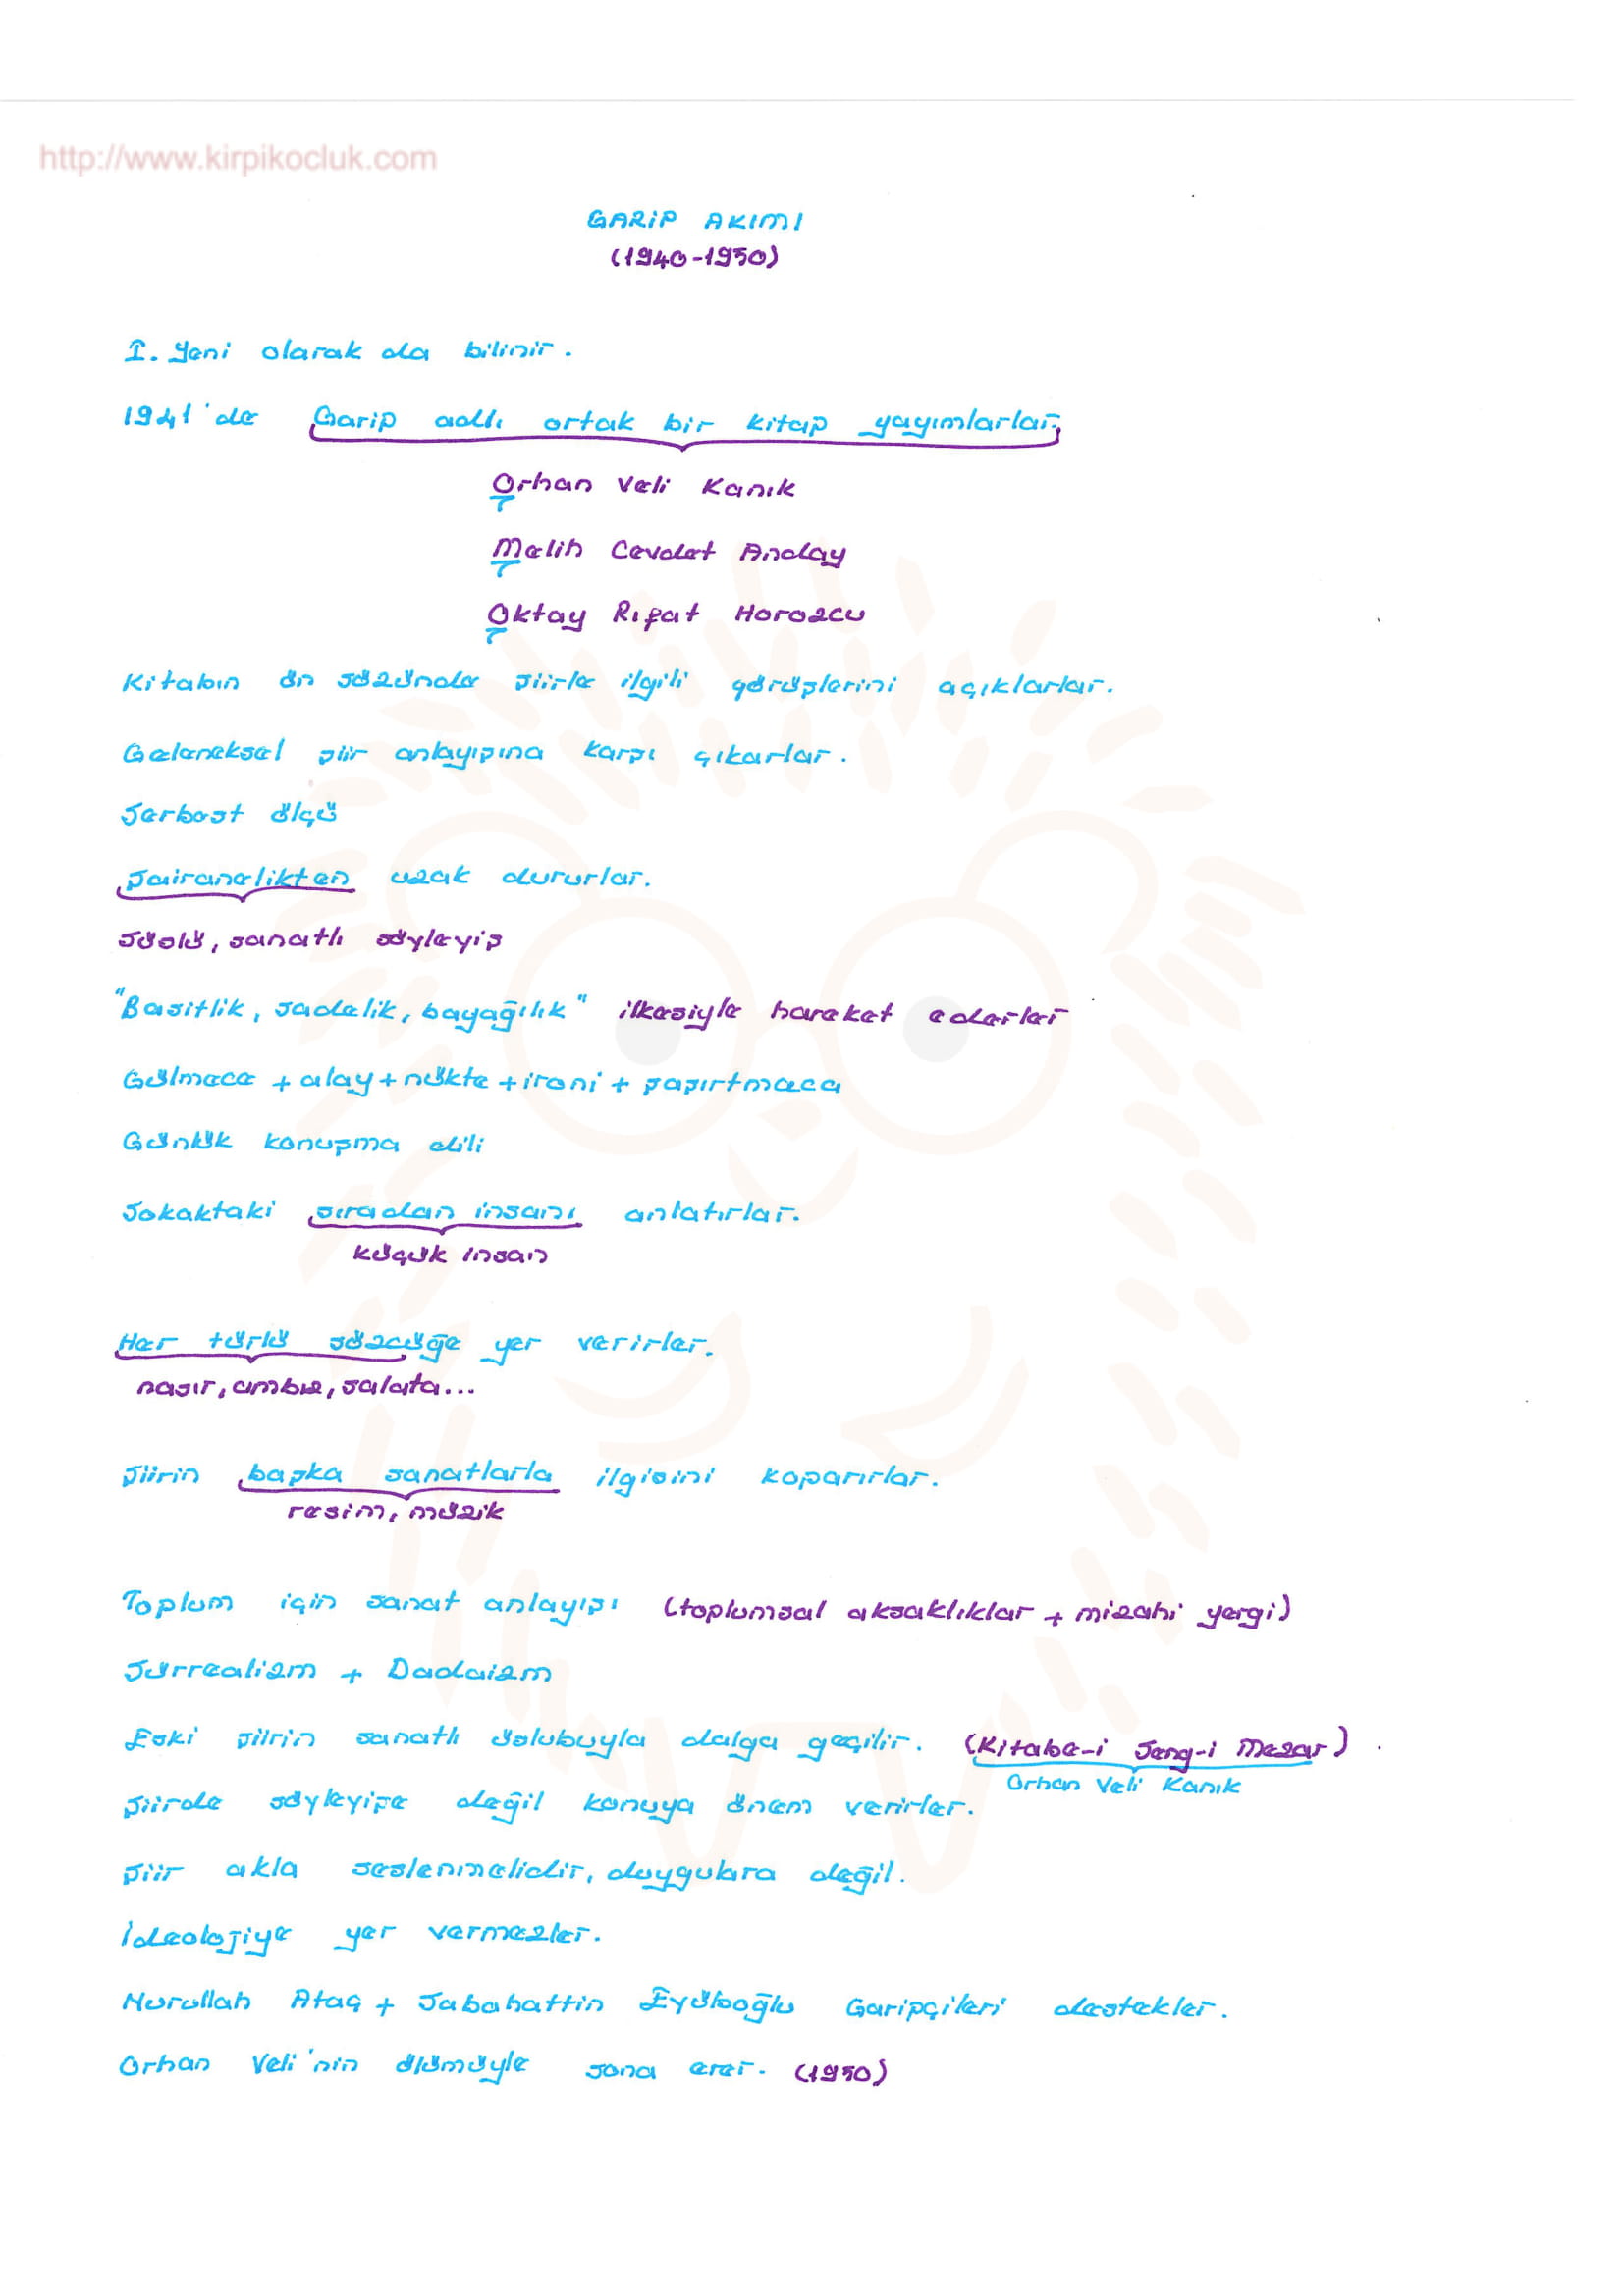 http://www.kirpikocluk.com
GARİP AKIMI
(1940-1950)
I. Yeni olarak da bilinir.
1941'de Garip adlı ortak bir kitap yayımlarlar.
Orhan Veli Kanık
Melih Cevdet Anday
Oktay Rıfat Horozcu
Kitabın ön sözünde şiirle ilgili görüşlerini açıklarlar.
Geleneksel şiir anlayışına karşı çıkarlar.
Serbest ölçü
Şairanelikten uzak dururlar.
Süslü, sanatlı söyleyiş
"Basitlik, sadelik, bayağılık" ilkesiyle hareket ederler
Gülmece + alay + nükte + ironi + şaşırtmaca
Günlük konuşma dili
Sokaktaki sıradan insanı anlatırlar.
küçük insan
Her türlü sözcüğe yer verirler.
nasır, cımbız, salata...
Şiirin başka sanatlarla ilgisini koparırlar.
resim, müzik
Toplum için sanat anlayışı (toplumsal aksaklıklar + mizahi yergi)
Sürrealizm + Dadaizm
Eski şiirin sanatlı üslubuyla dalga geçilir. (Kitabe-i Seng-i Mezar)
Orhan Veli Kanık
Şiirde söyleyişe değil konuya önem verirler.
Şiir akla seslenmelidir, duygulara değil.
İdeolojiye yer vermezler.
Nurullah Ataç + Sabahattin Eyüboğlu Garipçileri destekler.
Orhan Veli'nin ölümüyle sona erer. (1950)